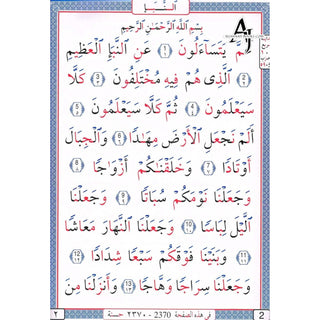 النَّبَإِ
بِسْمِ اللَّهِ الرَّحْمَٰنِ الرَّحِيمِ
عَمَّ يَتَسَآءَلُونَ ﴿١﴾ عَنِ النَّبَإِ الْعَظِيمِ
﴿٢﴾ الَّذِى هُمْ فِيهِ مُخْتَلِفُونَ ﴿٣﴾ كَلَّا
سَيَعْلَمُونَ ﴿٤﴾ ثُمَّ كَلَّا سَيَعْلَمُونَ ﴿٥﴾
أَلَمْ نَجْعَلِ الْأَرْضَ مِهَٰدًا ﴿٦﴾ وَالْجِبَالَ
أَوْتَادًا ﴿٧﴾ وَخَلَقْنَٰكُمْ أَزْوَٰجًا ﴿٨﴾
وَجَعَلْنَا نَوْمَكُمْ سُبَاتًا ﴿٩﴾ وَجَعَلْنَا
الَّيْلَ لِبَاسًا ﴿١٠﴾ وَجَعَلْنَا النَّهَارَ مَعَاشًا
﴿١١﴾ وَبَنَيْنَا فَوْقَكُمْ سَبْعًا شِدَادًا ﴿١٢﴾
وَجَعَلْنَا سِرَاجًا وَهَّاجًا ﴿١٣﴾ وَأَنزَلْنَا مِنَ
٢ في هذه الصفحة 2370 - ٢٣٧٠ حسنة 2